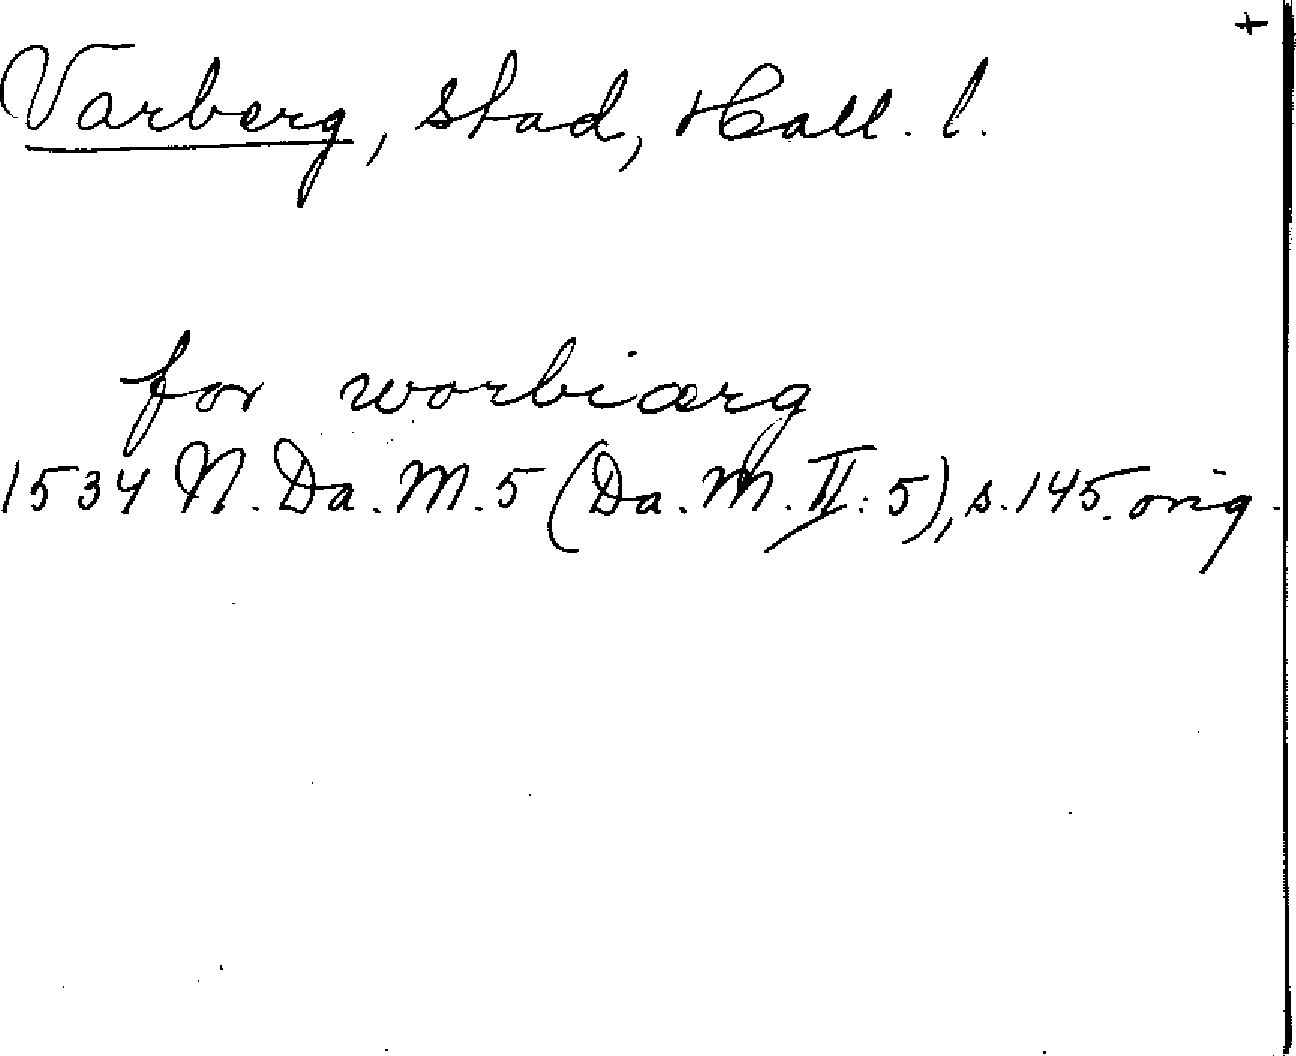 +
Varberg, stad, Hall. l.
for worbiærg
1534 N. Da. M. 5 (Da. M. II: 5), s. 145. orig.